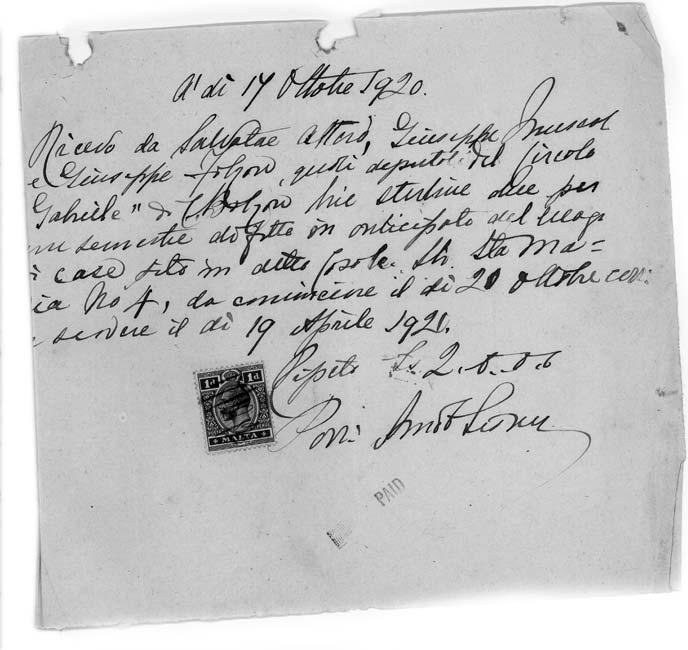 A' dì 17 Ottobre 1920.
Ricevo da Salvatore Attard, Giuseppe Muscat
e Giuseppe quali deputati del Circolo
Gabriele" di lire sterline due per
un semestre di fitto in anticipato del luogo
case sito in detto Casale Sta Ma=
ia No 4, da cominciare il dì 20 Ottobre corr:
e scadere il dì 19 Aprile 1921.
Ripeto Ls. 2.0.0
1d 1d
MALTA
PAID